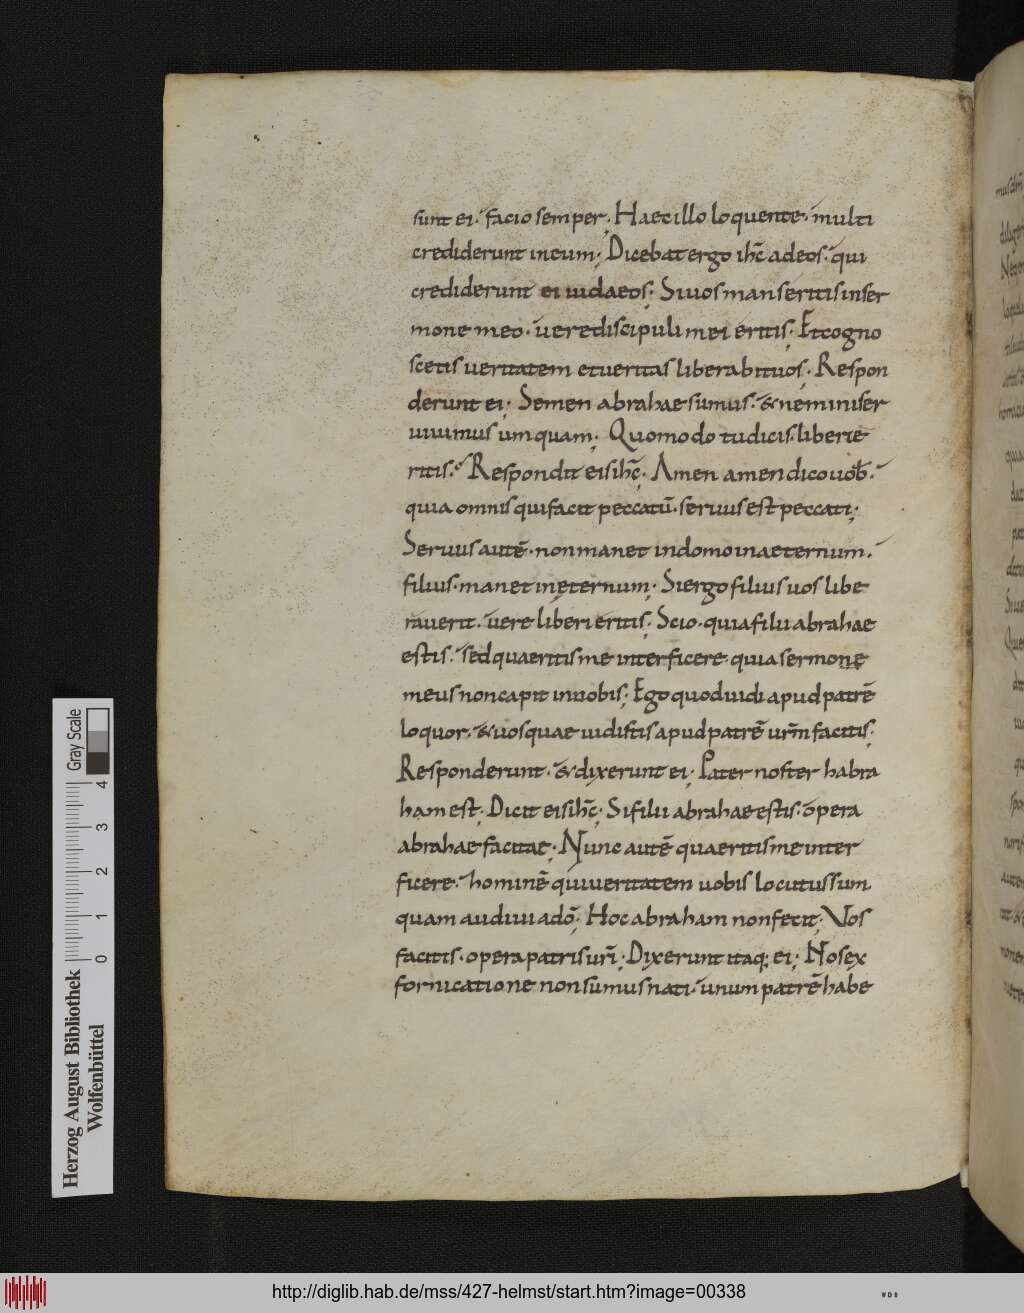 sunt ei· facio semper; Haec illo loquente· multi
crediderunt in eum; Dicebat ergo ihc̄ ad eos· qui
crediderunt ei iudaeos; Si uos manseritis in ser
mone meo· uere discipuli mei eritis; Et cogno
scetis ueritatem et ueritas liberabit uos; Respon
derunt ei; Semen abrahae sumus· & nemini ser
uiuimus umquam; Quomodo tu dicis· liberi e
ritis· Respondit eis ihc̄; Amen amen dico uob̄·
quia omnis qui facit peccatū· seruus est peccati;
Seruus autē· non manet in domo in aeternum·
filius· manet in ęternum; Si ergo filius uos libe
rauerit· uere liberi eritis; Scio· quia filii abrahae
estis· sed quaeritis me interficere quia sermone
meus non capit in uobis; Ego quod uidi apud patrē
loquor· & uos quae uidistis apud patrē urm̄ facitis;
Responderunt· & dixerunt ei; Pater noster habra
ham est; Dicit eis ihc̄; Si filii abrahae estis· opera
abrahae facitae; Nunc autē quaeritis me inter
ficere· hominē qui ueritatem uobis locutus sum
quam audiui a dō; Hoc abraham non fecit; Vos
facitis· opera patris urī; Dixerunt itaq; ei; Nos ex
fornicatione non sumus nati· unum patrē habe
Herzog August Bibliothek
Wolfenbüttel
0 1 2 3 4
Gray Scale
http://diglib.hab.de/mss/427-helmst/start.htm?image=00338